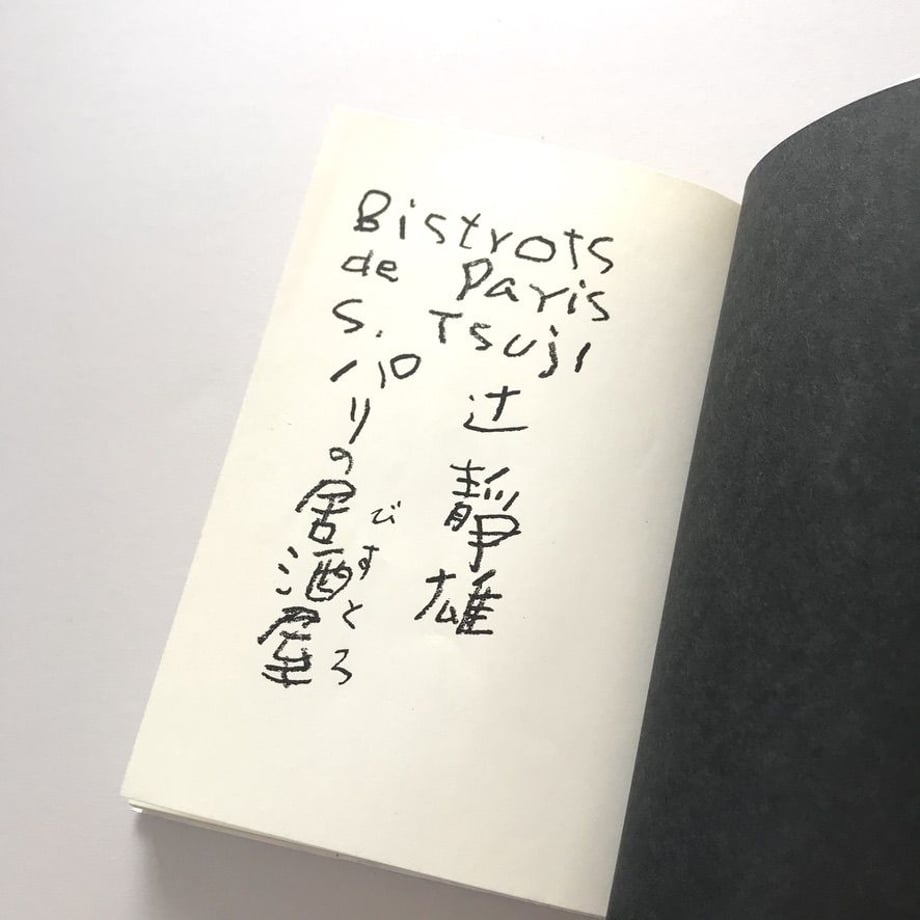 Bistrots
de Paris
S. Tsuji
辻靜雄
パリの居酒屋
びすとろ